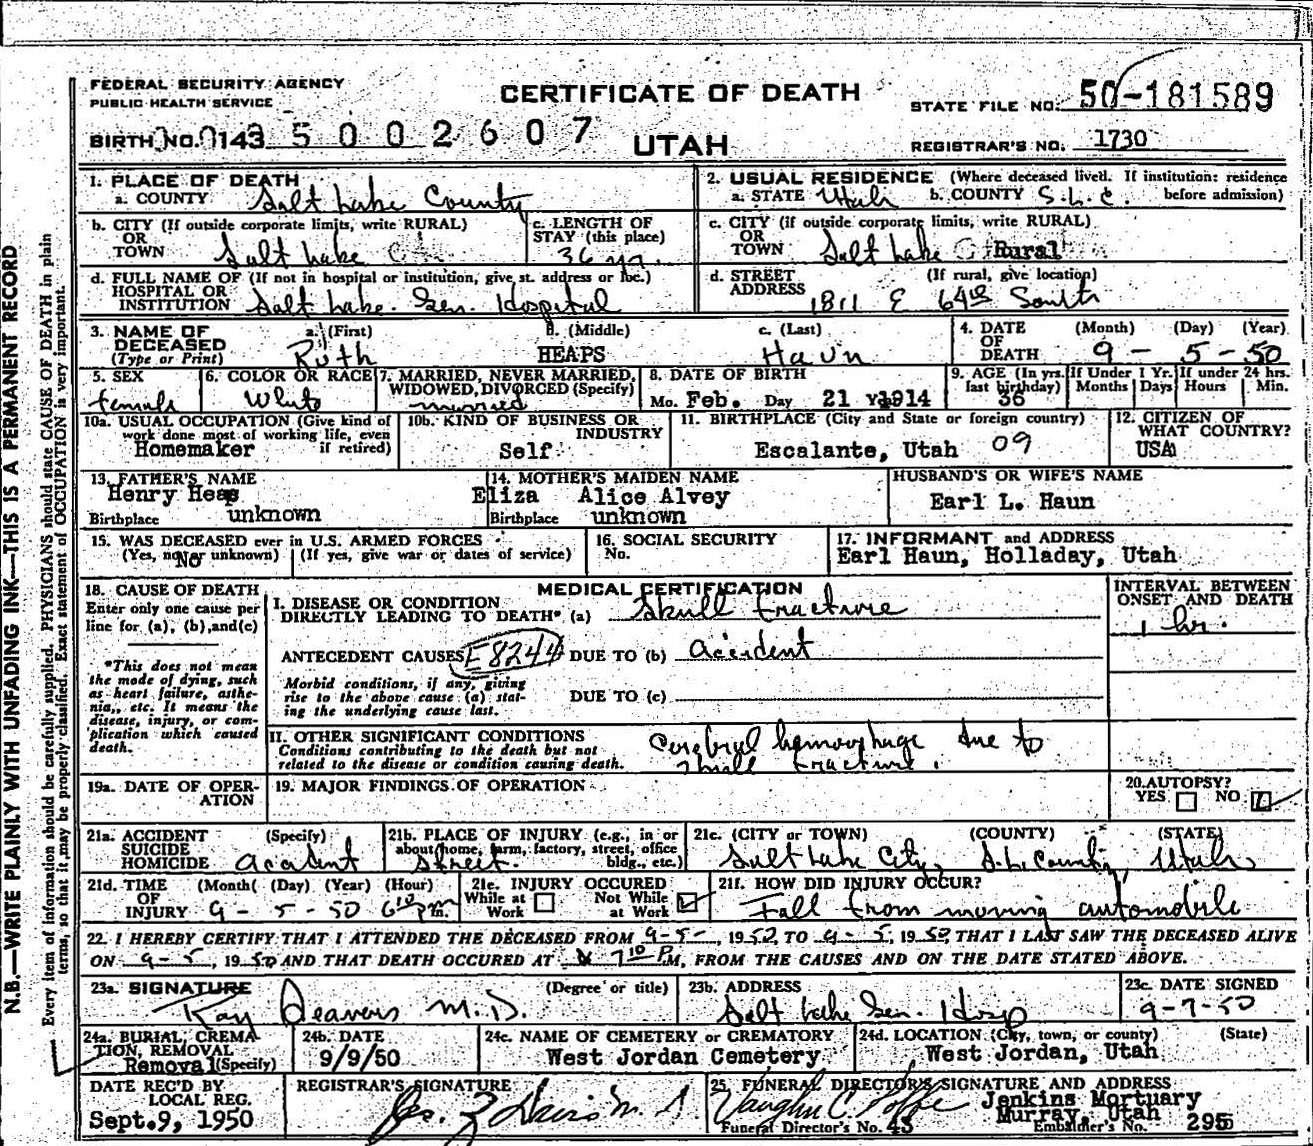 FEDERAL SECURITY AGENCY
PUBLIC HEALTH SERVICE
CERTIFICATE OF DEATH
STATE FILE NO. 50-181589
BIRTH NO. 0143 5 0 0 2 6 0 7
UTAH
REGISTRAR'S NO. 1730
1. PLACE OF DEATH
a. COUNTY Salt Lake County
2. USUAL RESIDENCE (Where deceased lived. If institution: residence before admission)
a. STATE Utah b. COUNTY S.L.C.
b. CITY (If outside corporate limits, write RURAL)
OR
TOWN Salt Lake C
c. LENGTH OF
STAY (this place)
36 yr.
c. CITY (If outside corporate limits, write RURAL)
OR
TOWN Salt Lake C Rural
d. FULL NAME OF (If not in hospital or institution, give st. address or loc.)
HOSPITAL OR
INSTITUTION Salt Lake Gen. Hospital
d. STREET (If rural, give location)
ADDRESS 1811 E 64th South
3. NAME OF DECEASED
(Type or Print)
a. (First) Ruth
b. (Middle) HEAPS
c. (Last) Haun
4. DATE OF DEATH (Month) (Day) (Year)
9 - 5 - 50
5. SEX
female
6. COLOR OR RACE
White
7. MARRIED, NEVER MARRIED,
WIDOWED, DIVORCED (Specify)
married
8. DATE OF BIRTH
Mo. Feb. Day 21 1914
9. AGE (In yrs. last birthday) 36
If Under 1 Yr. Months Days
If under 24 hrs. Hours Min.
10a. USUAL OCCUPATION (Give kind of
work done most of working life, even
if retired)
Homemaker
10b. KIND OF BUSINESS OR
INDUSTRY
Self
11. BIRTHPLACE (City and State or foreign country)
Escalante, Utah 09
12. CITIZEN OF
WHAT COUNTRY?
USA
13. FATHER'S NAME
Henry Heaps
Birthplace unknown
14. MOTHER'S MAIDEN NAME
Eliza Alice Alvey
Birthplace unknown
HUSBAND'S OR WIFE'S NAME
Earl L. Haun
15. WAS DECEASED ever in U.S. ARMED FORCES
(Yes, no or unknown) (If yes, give war or dates of service)
No
16. SOCIAL SECURITY
No.
17. INFORMANT and ADDRESS
Earl Haun, Holladay, Utah
18. CAUSE OF DEATH
Enter only one cause per
line for (a), (b), and (c)
*This does not mean
the mode of dying, such
as heart failure, asthe-
nia, etc. It means the
disease, injury, or com-
plication which caused
death.
MEDICAL CERTIFICATION
I. DISEASE OR CONDITION
DIRECTLY LEADING TO DEATH* (a) Skull fracture
ANTECEDENT CAUSES E8244 DUE TO (b) accident
Morbid conditions, if any, giving
rise to the above cause (a) stat-
ing the underlying cause last.
DUE TO (c)
II. OTHER SIGNIFICANT CONDITIONS
Conditions contributing to the death but not
related to the disease or condition causing death.
Cerebral hemorrhage due to
skull fracture.
INTERVAL BETWEEN
ONSET AND DEATH
1 hr.
19a. DATE OF OPER-
ATION
19. MAJOR FINDINGS OF OPERATION
20. AUTOPSY?
YES NO
21a. ACCIDENT (Specify)
SUICIDE
HOMICIDE accident
21b. PLACE OF INJURY (e.g., in or
about home, farm, factory, street, office
bldg., etc.)
Street.
21c. (CITY or TOWN) (COUNTY) (STATE)
Salt Lake City, S.L. County, Utah
21d. TIME OF INJURY (Month) (Day) (Year) (Hour)
9 - 5 - 50 6 10 P m.
21e. INJURY OCCURED
While at Work Not While at Work
21f. HOW DID INJURY OCCUR?
Fall from moving automobile
22. I HEREBY CERTIFY THAT I ATTENDED THE DECEASED FROM 9-5-, 1950, TO 9-5, 1950, THAT I LAST SAW THE DECEASED ALIVE
ON 9-5, 1950 AND THAT DEATH OCCURED AT 7 10 P M, FROM THE CAUSES AND ON THE DATE STATED ABOVE.
23a. SIGNATURE (Degree or title)
Ray Deavers M.D.
23b. ADDRESS
Salt Lake Gen. Hosp
23c. DATE SIGNED
9-7-50
24a. BURIAL, CREMA-
TION, REMOVAL
Removal (Specify)
24b. DATE
9/9/50
24c. NAME OF CEMETERY or CREMATORY
West Jordan Cemetery
24d. LOCATION (City, town, or county) (State)
West Jordan, Utah
DATE REC'D BY
LOCAL REG.
Sept. 9, 1950
REGISTRAR'S SIGNATURE
25. FUNERAL DIRECTOR'S SIGNATURE AND ADDRESS
Vaughn C.
Jenkins Mortuary
Murray, Utah
Funeral Director's No. 43 Embalmer's No. 295
N.B.—WRITE PLAINLY WITH UNFADING INK—THIS IS A PERMANENT RECORD
Every item of information should be carefully supplied. PHYSICIANS should state CAUSE OF DEATH in plain
terms, so that it may be properly classified. Exact statement of OCCUPATION is very important.